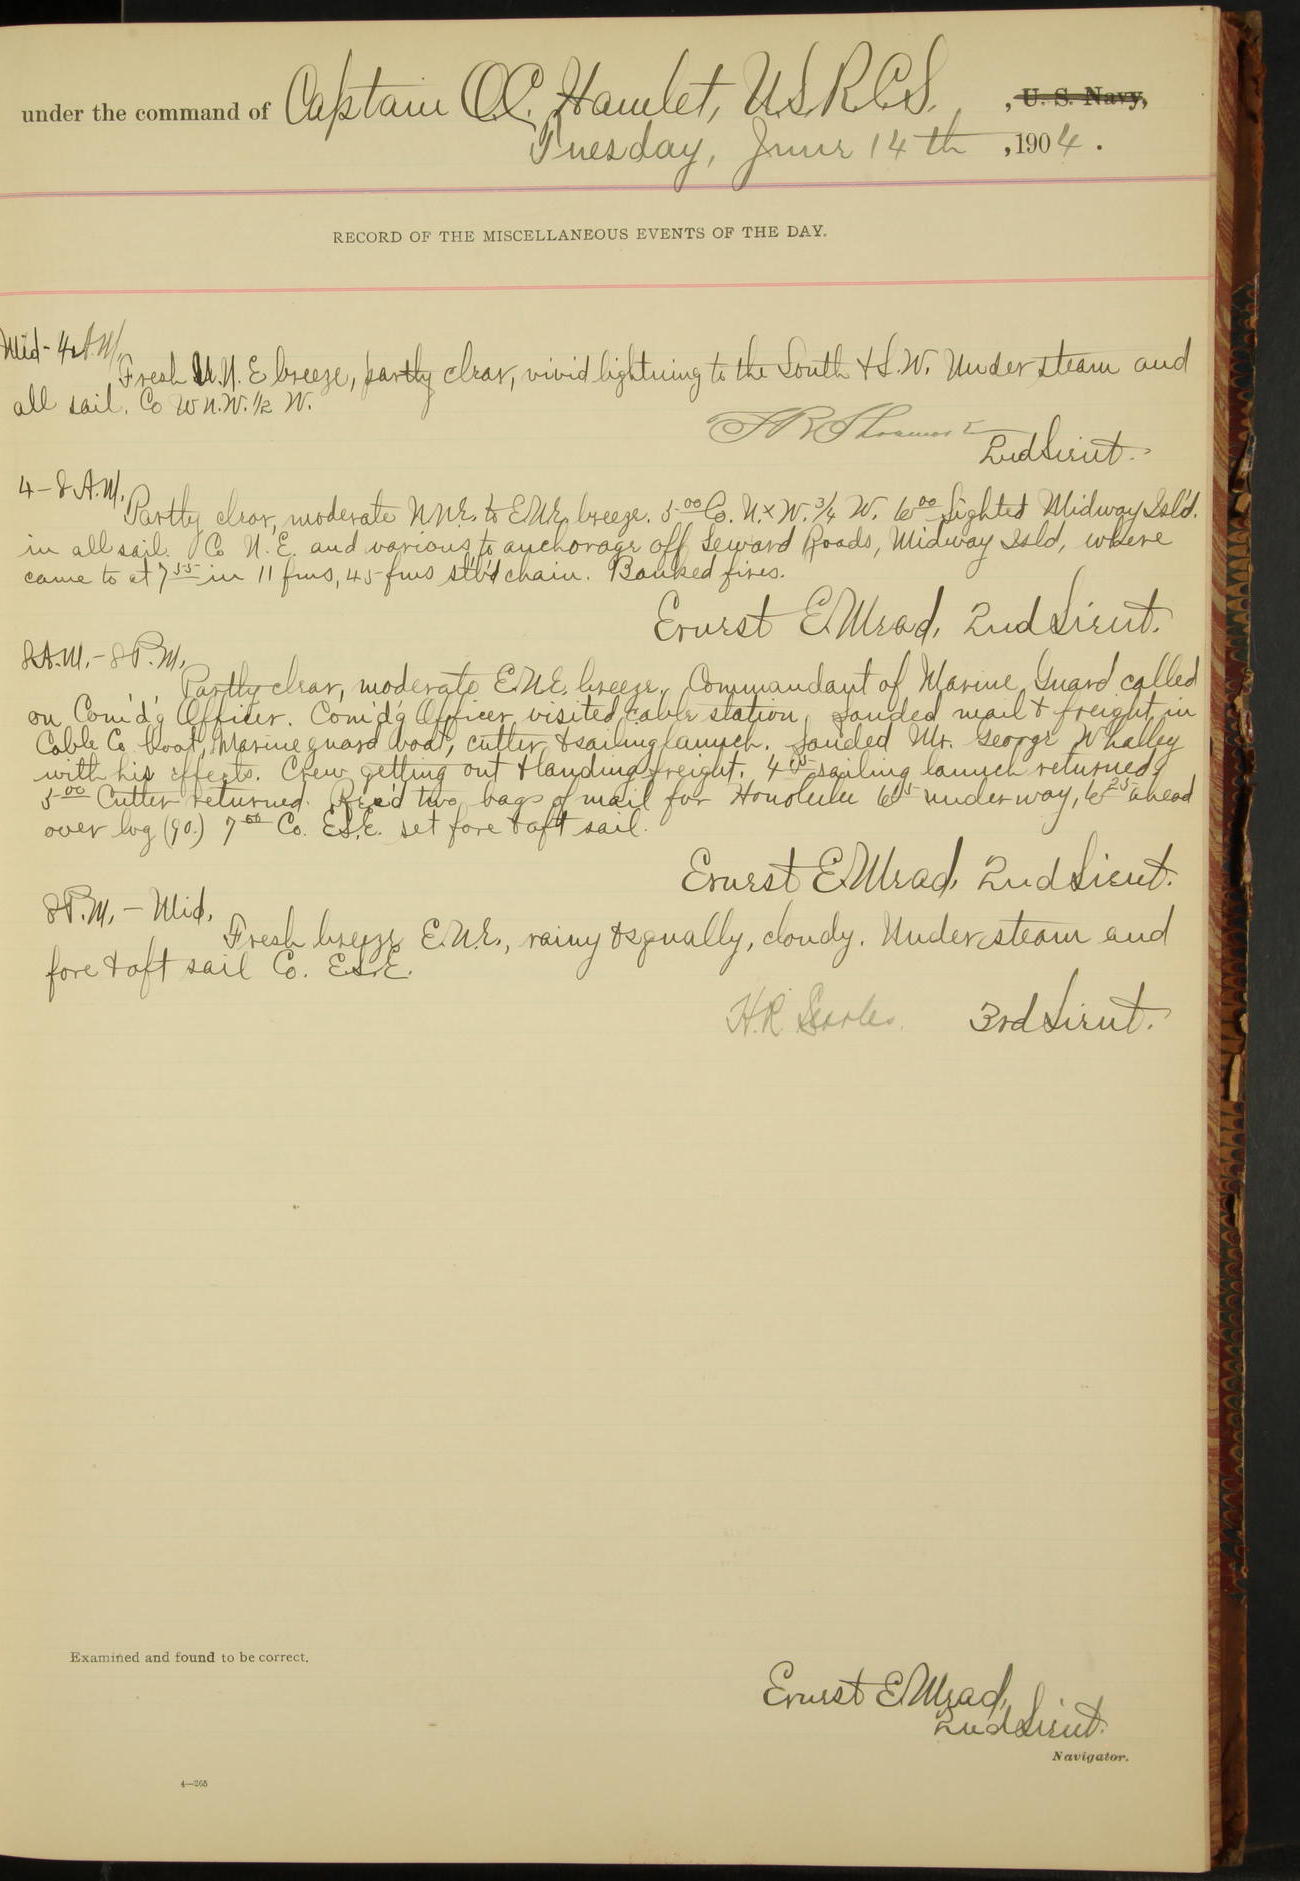 under the command of Captain O.C. Hamlet, U.S.R.C.S. , U. S. Navy,
Tuesday, June 14th , 1904.
RECORD OF THE MISCELLANEOUS EVENTS OF THE DAY.
Mid - 4 A.M.
Fresh N.N.E breeze, partly clear, vivid lightning to the South & S.W. Under steam and
all sail. Co W N.W. 1/2 W.
2nd Lieut.
4 - 8 A.M.
Partly clear, moderate NNE. to ENE. breeze. 5 00 Co. N.xW. 3/4 W. 6 00 Sighted Midway Isl'd.
in all sail. Co N.E. and various to anchorage off Seward Roads, Midway Isld, where
came to at 7 55 in 11 fms, 45 fms stb'd chain. Banked fires.
Ernest E. Mead, 2nd Lieut.
8 A.M. - 8 P.M.
Partly clear, moderate E.N.E. breeze. Commandant of Marine Guard called
on Com'd'g Officer. Com'd'g Officer visited cable station, Landed mail & freight in
Cable Co. boat, Marine guard boat, cutter & sailing launch. Landed Mr. George Whalley
with his effects. Crew getting out & landing freight. 4 sailing launch returned,
5 00 Cutter returned. Rec'd two bags of mail for Honolulu 6 underway, 6 25 ahead
over log (90.) 7 00 Co. E.S.E. set fore & aft sail.
Ernest E. Mead, 2nd Lieut.
8 P.M. - Mid.
Fresh breeze E.N.E., rainy & squally, cloudy. Under steam and
fore & aft sail Co. E.S.E.
H.R. Searles. 3rd Lieut.
Examined and found to be correct.
Ernest E. Mead,
2nd Lieut.
Navigator.
4—265